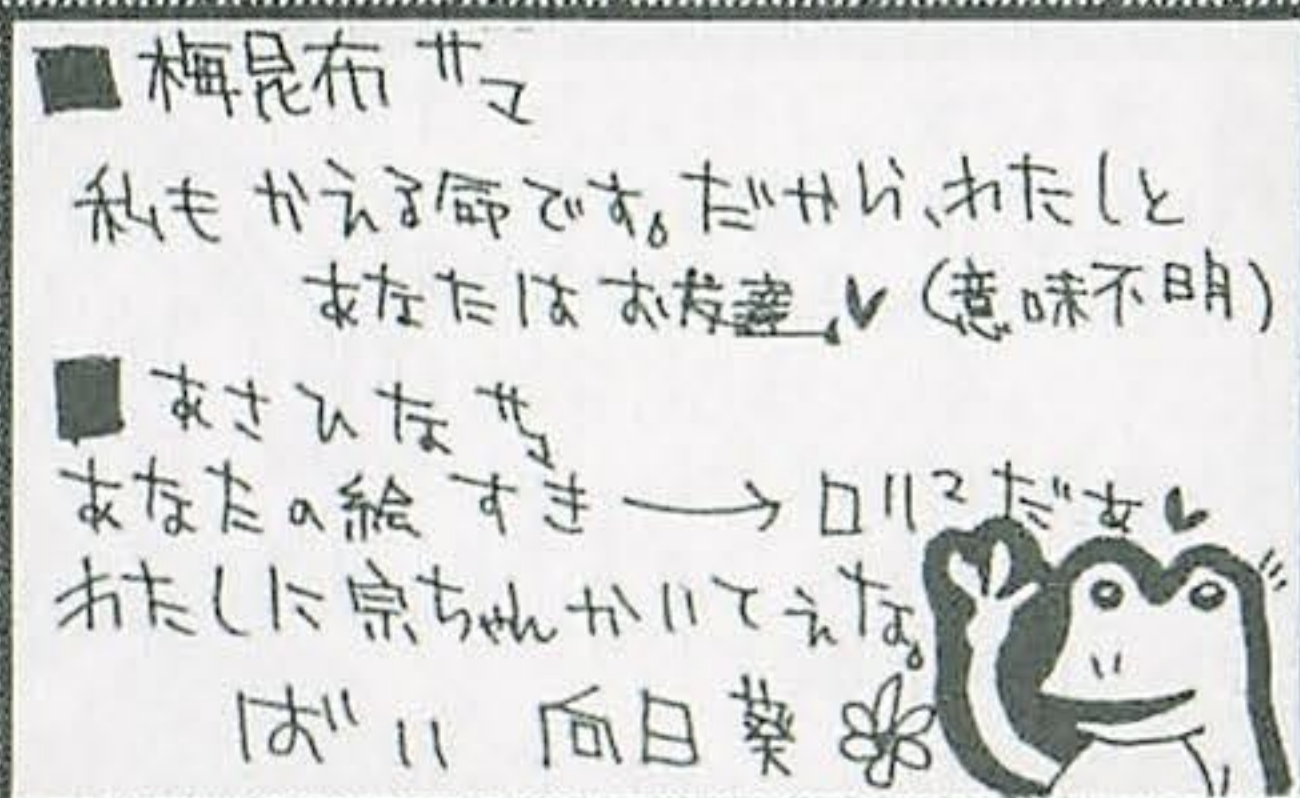 ■ 梅昆布 サマ
私も かえる命です。だから、わたしと
あなたは お友達♥(意味不明)
■ あさひな サマ
あなたの絵 すき→ロリマだあ♥
わたしに宗ちゃん かいてえな。
ばい 向日葵